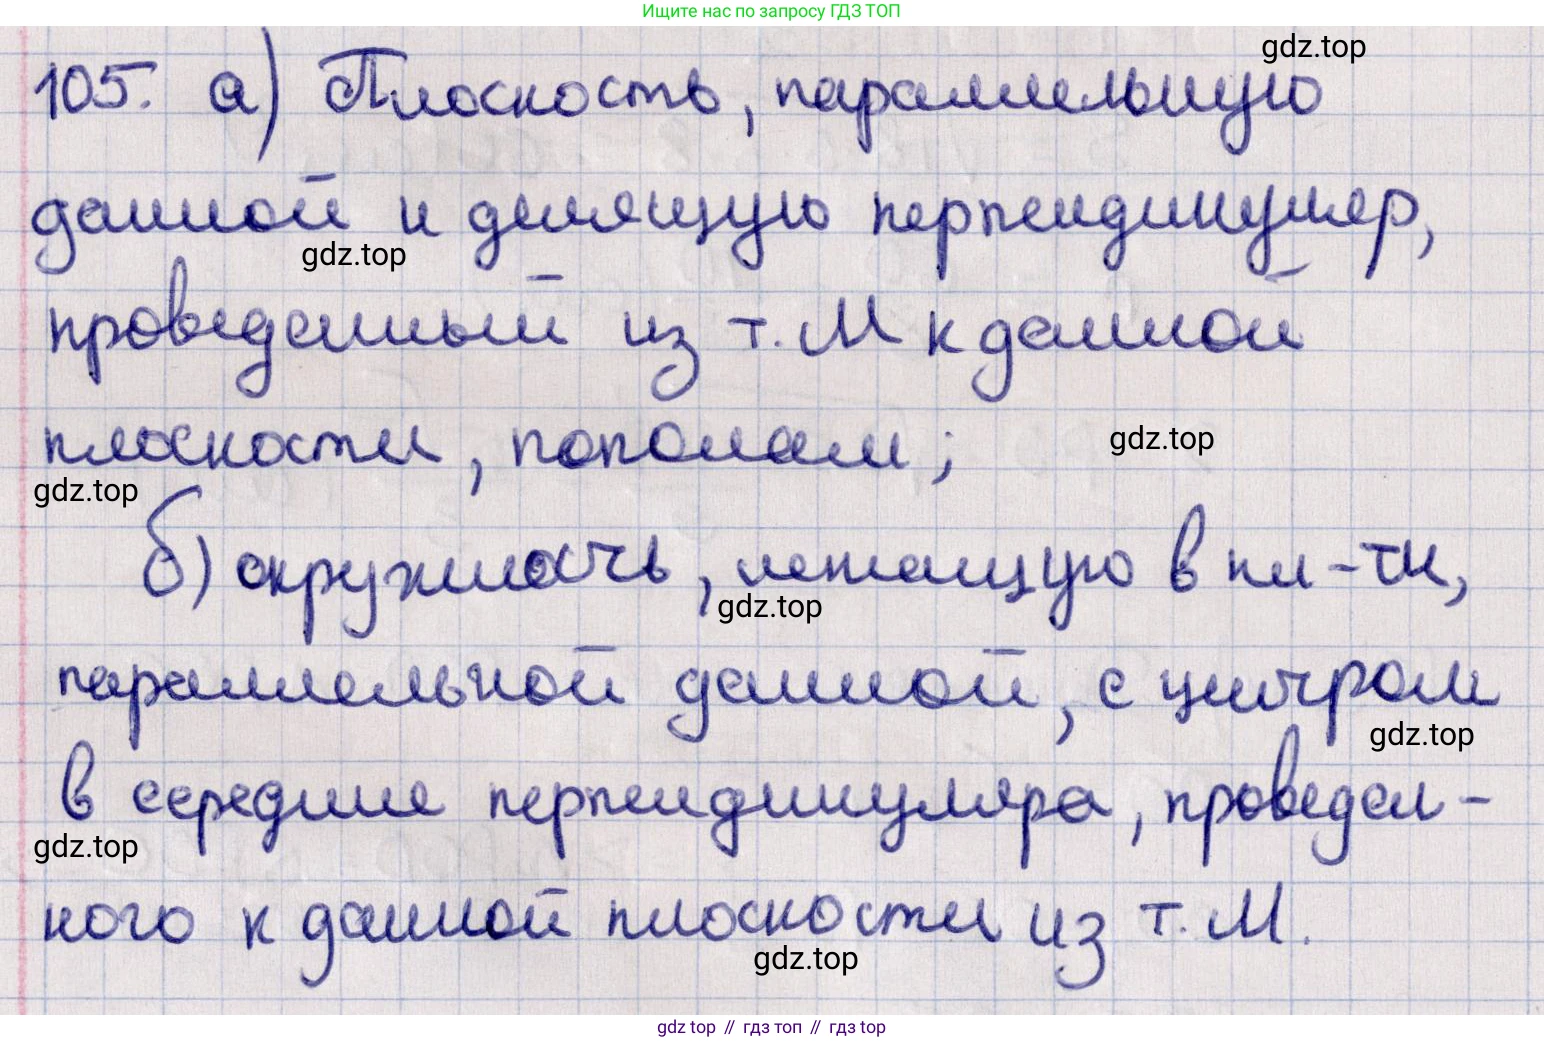 Ищите нас по запросу ГДЗ ТОП
gdz.top
105. а) Плоскость, параллельную
данной и делящую перпендикуляр,
gdz.top
проведенный из т. М к данной
плоскости, пополам;
gdz.top
gdz.top
б) окружность, лежащую в пл-ти,
gdz.top
параллельной данной, с центром
gdz.top
в середине перпендикуляра, проведен-
gdz.top
ного к данной плоскости из т. М.
gdz.top
gdz top // гдз топ // gdz top